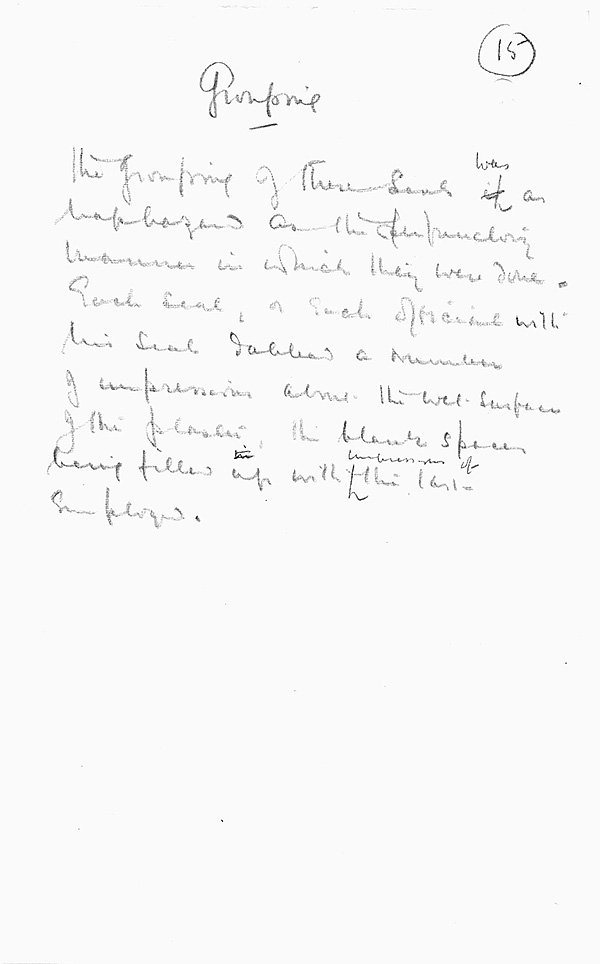 15
Grouping
The Grouping of these Seals was as
haphazard as the perfunctory
manner in which they were done.
Each seal, or each official with
his seal dabbed a number
of impressions about the wet surface
of the plaster, the blank spaces
being filled up with impressions of the last
employed.